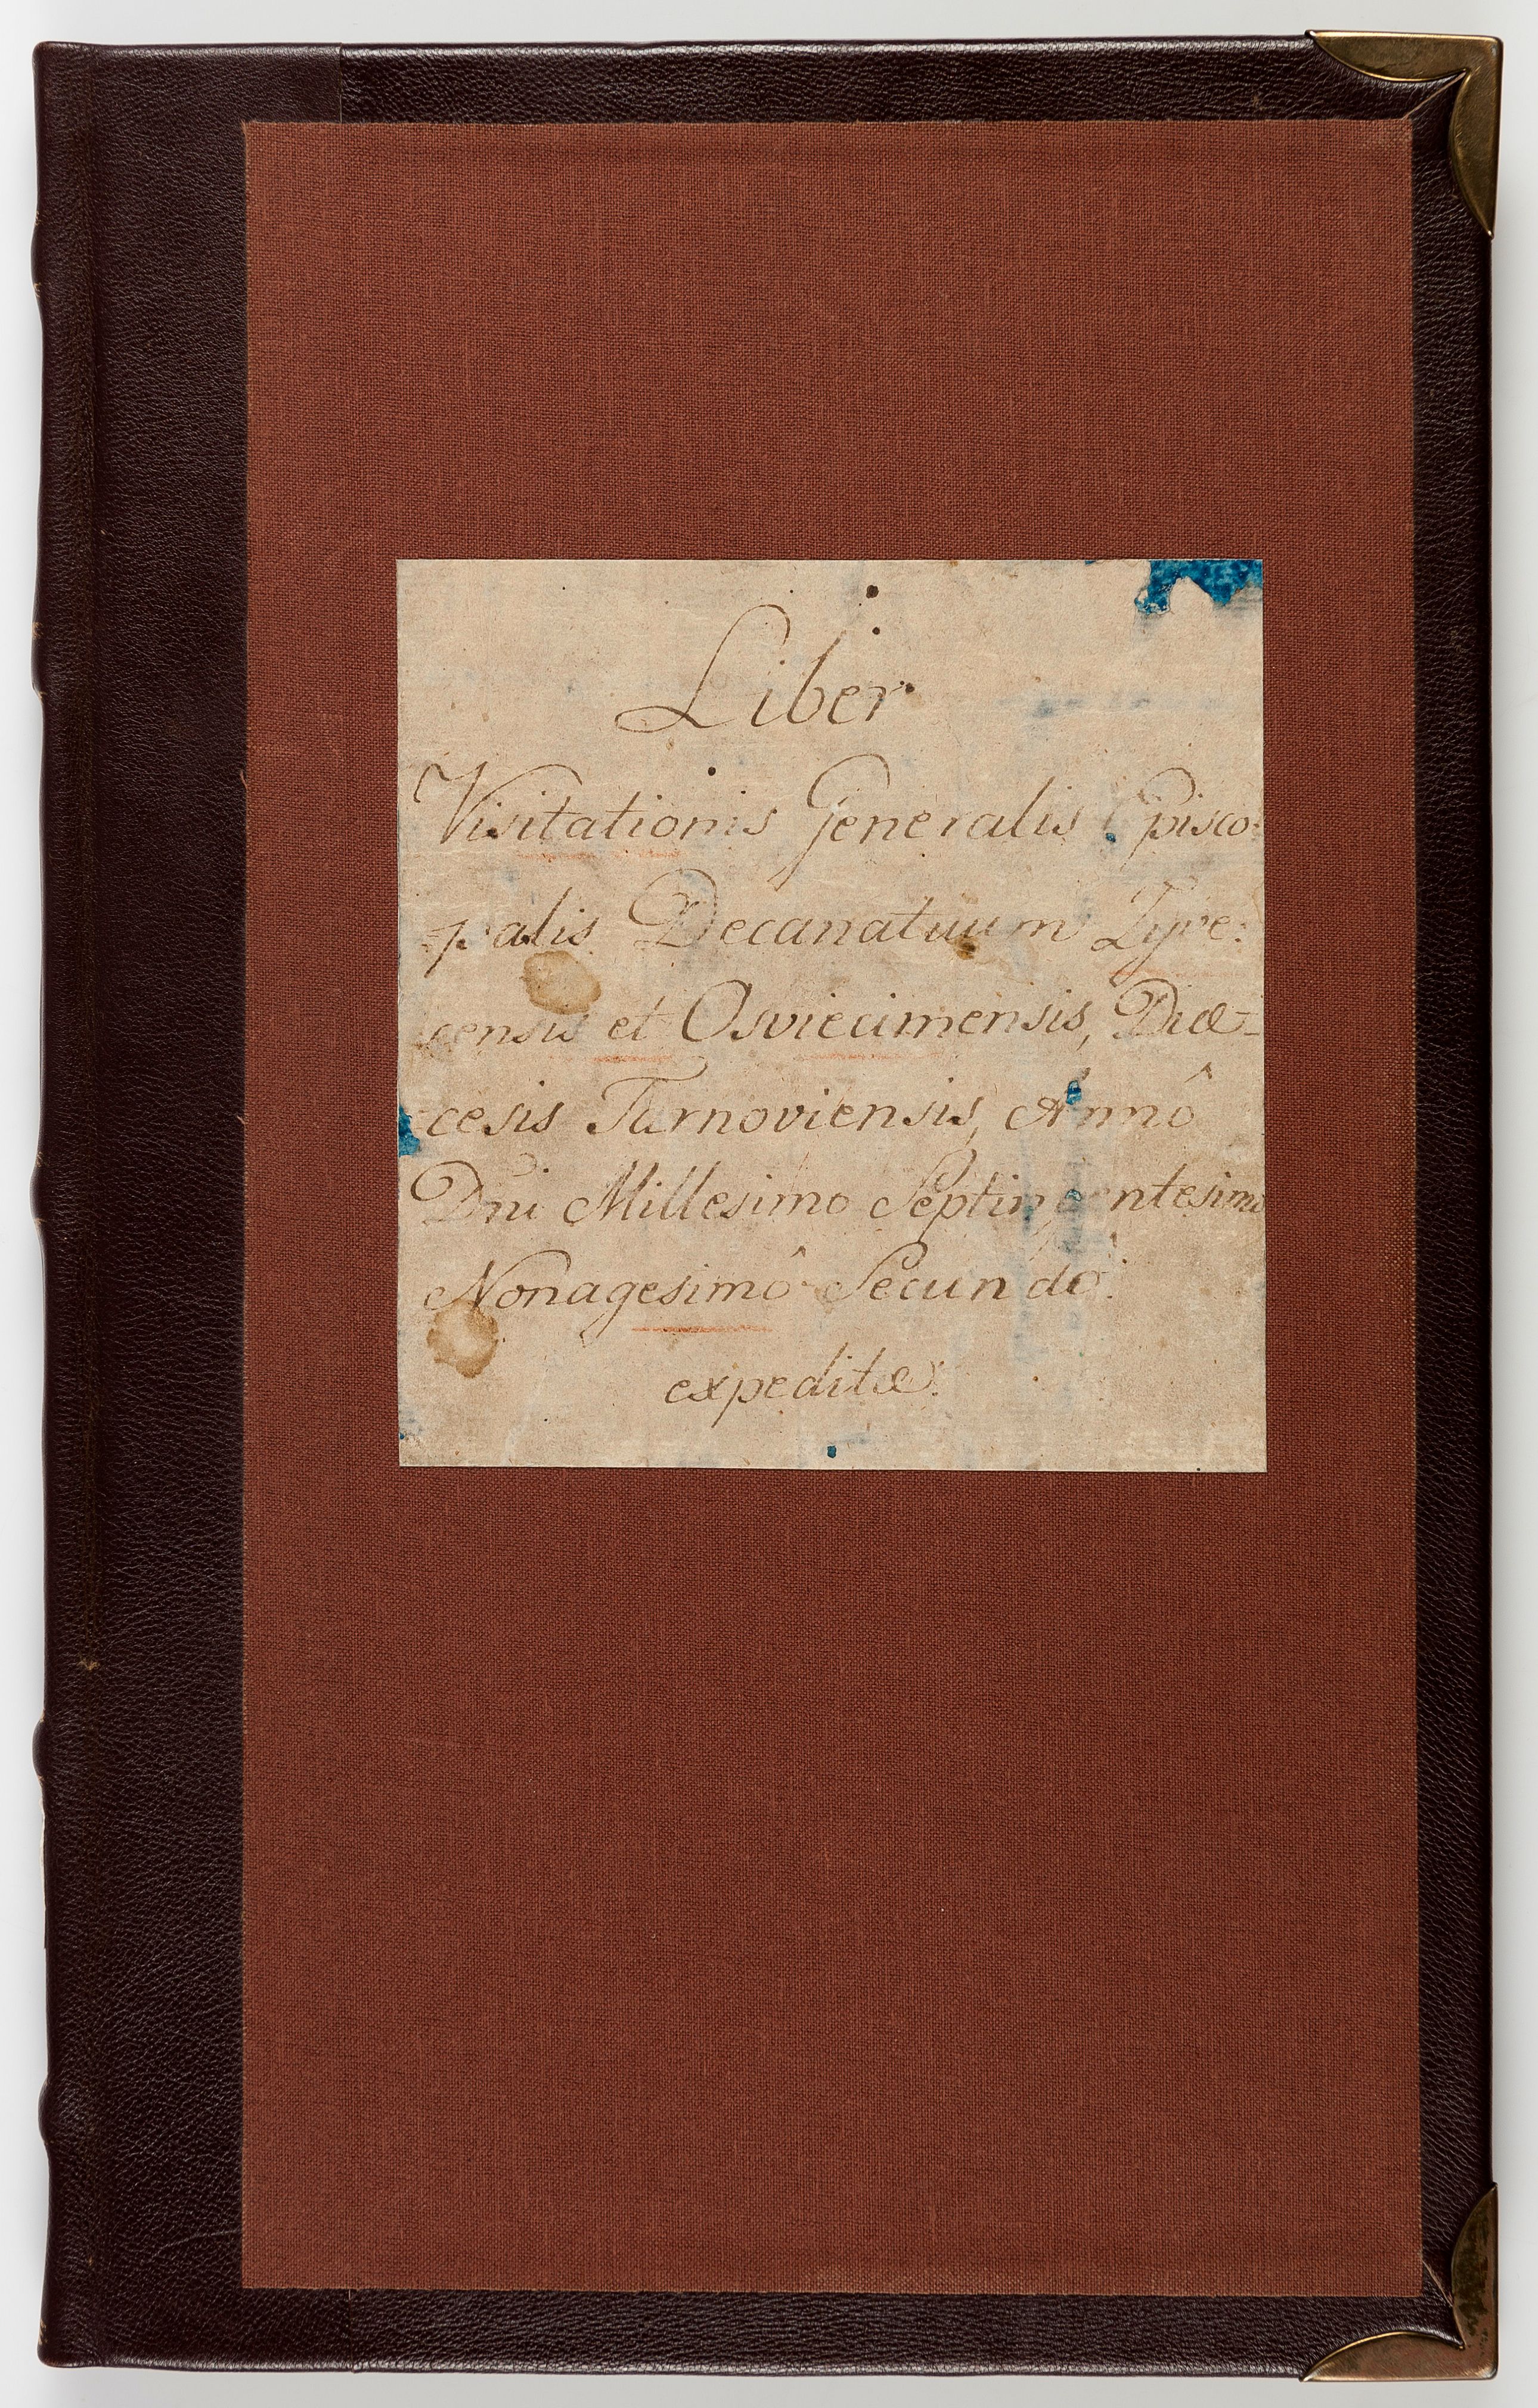 Liber
Visitationis Generalis Episco:
palis Decanatuum Zyve:
censis et Osviecimensis, Diœ-
cesis Tarnoviensis, Annô
Dni Millesimo Septingentesimo
Nonagesimô Secundô.
expeditæ.